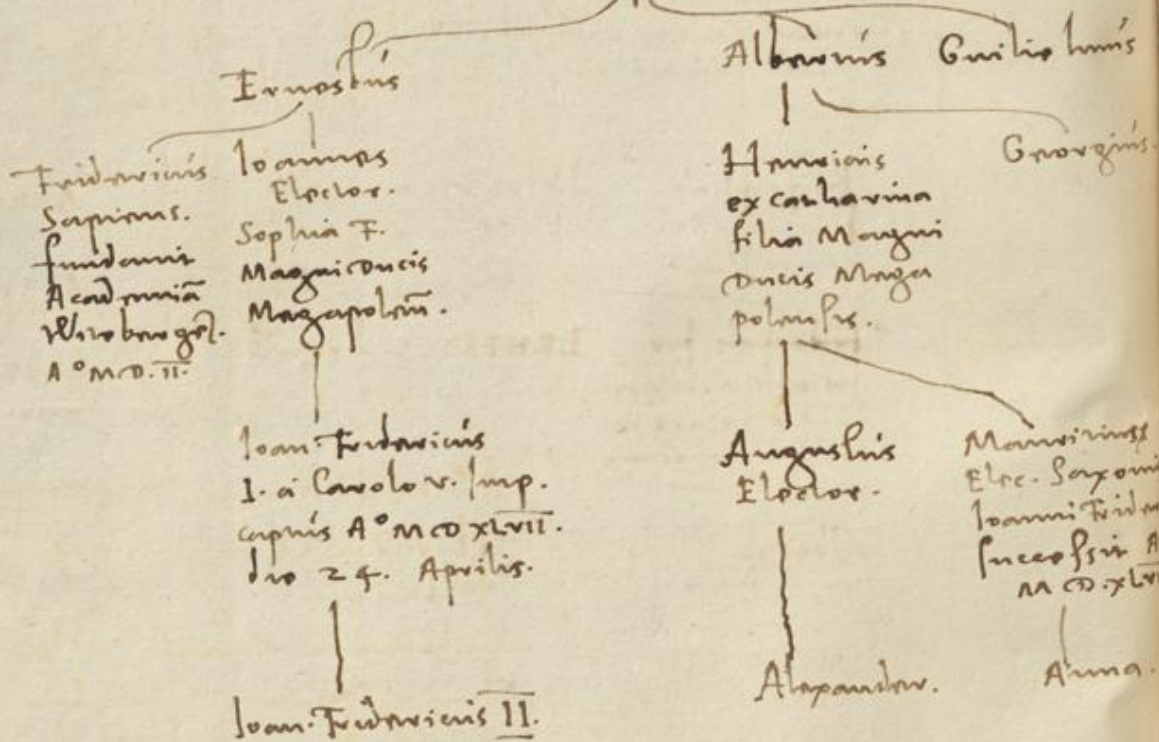 Ernestus
Albertus
Guilielmus
Fridericus
Sapiens.
fundavit
Academiã
Witebergeñ.
Aº M.D.II.
Ioannes
Elector.
Sophia F.
Magni Ducis
Megapoleñ.
Henricus
ex Catharina
filia Magni
Ducis Mega
polensis.
Georgius.
Ioan. Fridericus
I. a Carolo V. Imp.
captus Aº M CD XLVII.
die 24. Aprilis.
Augustus
Elector.
Mauritius
Elec. Saxoni
Ioanni Frider
successit A
M CD.XLVI
Ioan. Fridericus II.
Alexander.
Anna.